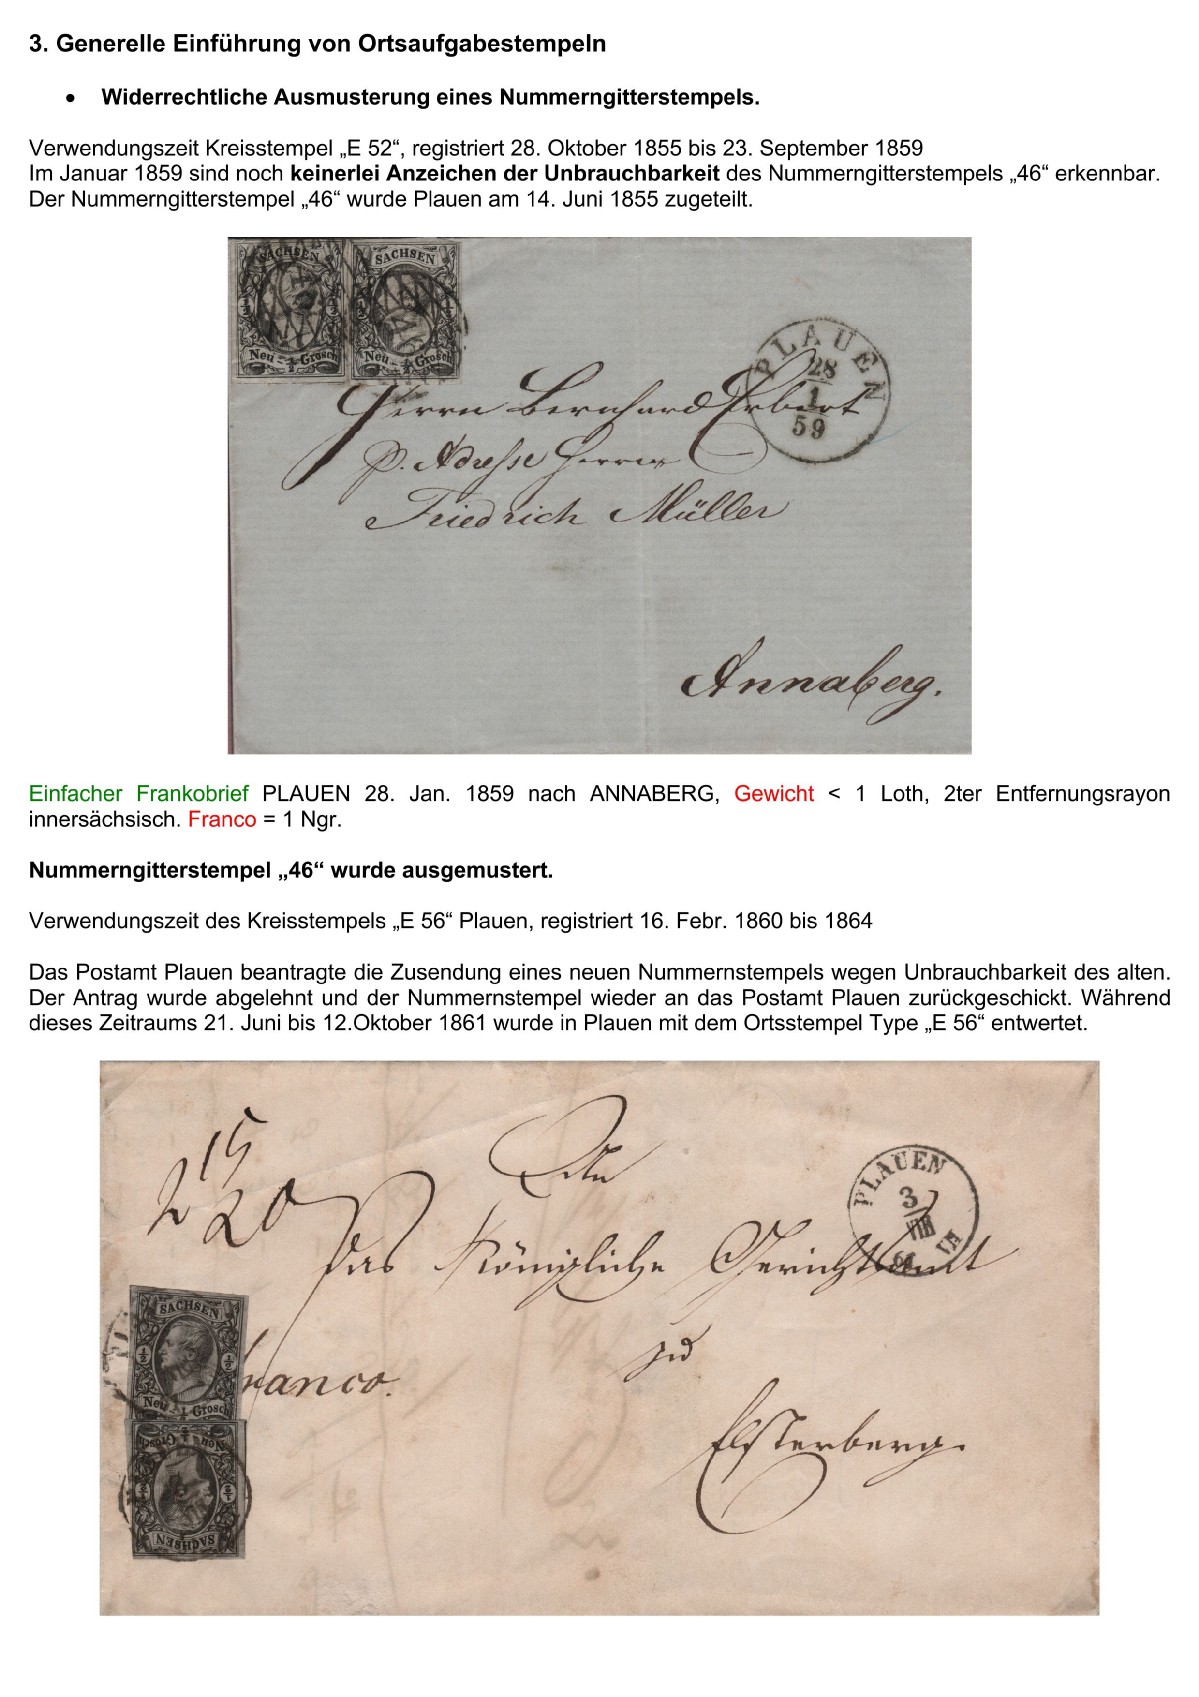 3. Generelle Einführung von Ortsaufgabestempeln
• Widerrechtliche Ausmusterung eines Nummerngitterstempels.
Verwendungszeit Kreisstempel „E 52“, registriert 28. Oktober 1855 bis 23. September 1859
Im Januar 1859 sind noch keinerlei Anzeichen der Unbrauchbarkeit des Nummerngitterstempels „46“ erkennbar.
Der Nummerngitterstempel „46“ wurde Plauen am 14. Juni 1855 zugeteilt.
SACHSEN SACHSEN
Neu Grosch Neu Grosch
PLAUEN
28
1
59
Herrn Bernhard
p. Adresse Herrn
Friedrich Müller
Annaberg.
Einfacher Frankobrief PLAUEN 28. Jan. 1859 nach ANNABERG, Gewicht < 1 Loth, 2ter Entfernungsrayon
innersächsisch. Franco = 1 Ngr.
Nummerngitterstempel „46“ wurde ausgemustert.
Verwendungszeit des Kreisstempels „E 56“ Plauen, registriert 16. Febr. 1860 bis 1864
Das Postamt Plauen beantragte die Zusendung eines neuen Nummernstempels wegen Unbrauchbarkeit des alten.
Der Antrag wurde abgelehnt und der Nummernstempel wieder an das Postamt Plauen zurückgeschickt. Während
dieses Zeitraums 21. Juni bis 12.Oktober 1861 wurde in Plauen mit dem Ortsstempel Type „E 56“ entwertet.
An
PLAUEN
3
VIII
61 VM
das Königliche Gerichtsamt
zu
SACHSEN
½ ½
Neu Grosch
franco.
Elsterberg.
Neu Grosch
½ ½
SACHSEN